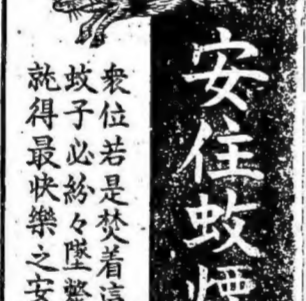 安住蚊煙
衆位若是焚着這
蚊子必紛々墜斃
就得最快樂之安